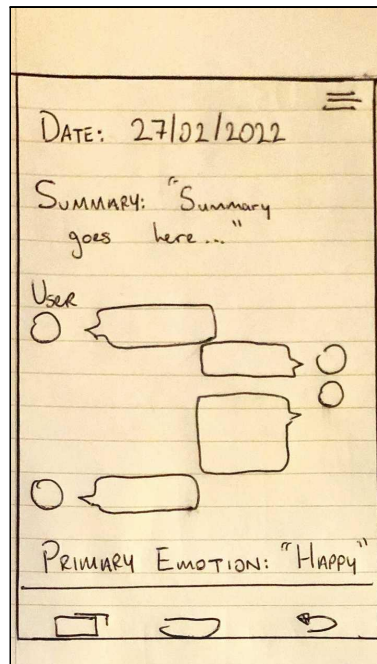 DATE: 27/02/2022
SUMMARY: "Summary
goes here..."
USER
PRIMARY EMOTION: "HAPPY"